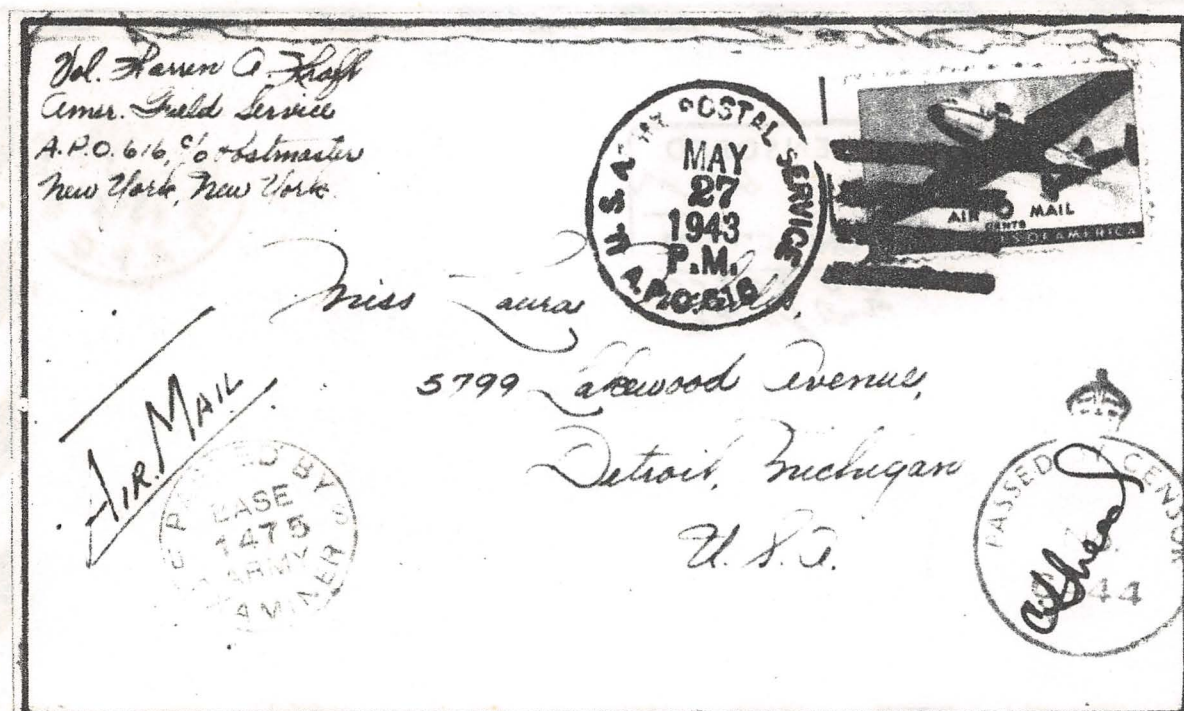 Vol. Warren A.
Amer. Field Service
A.P.O. 616, c/o Postmaster
New York, New York.
U.S. ARMY POSTAL SERVICE
MAY
27
1943
P.M.
A.P.O. 616
AIR MAIL
CENTS
OF AMERICA
Miss Laura
5799 Lakewood Avenue,
Detroit, Michigan
U.S.A.
AIR MAIL
BY
BASE
1475
ARMY
EXAMINER
PASSED BY CENSOR
44